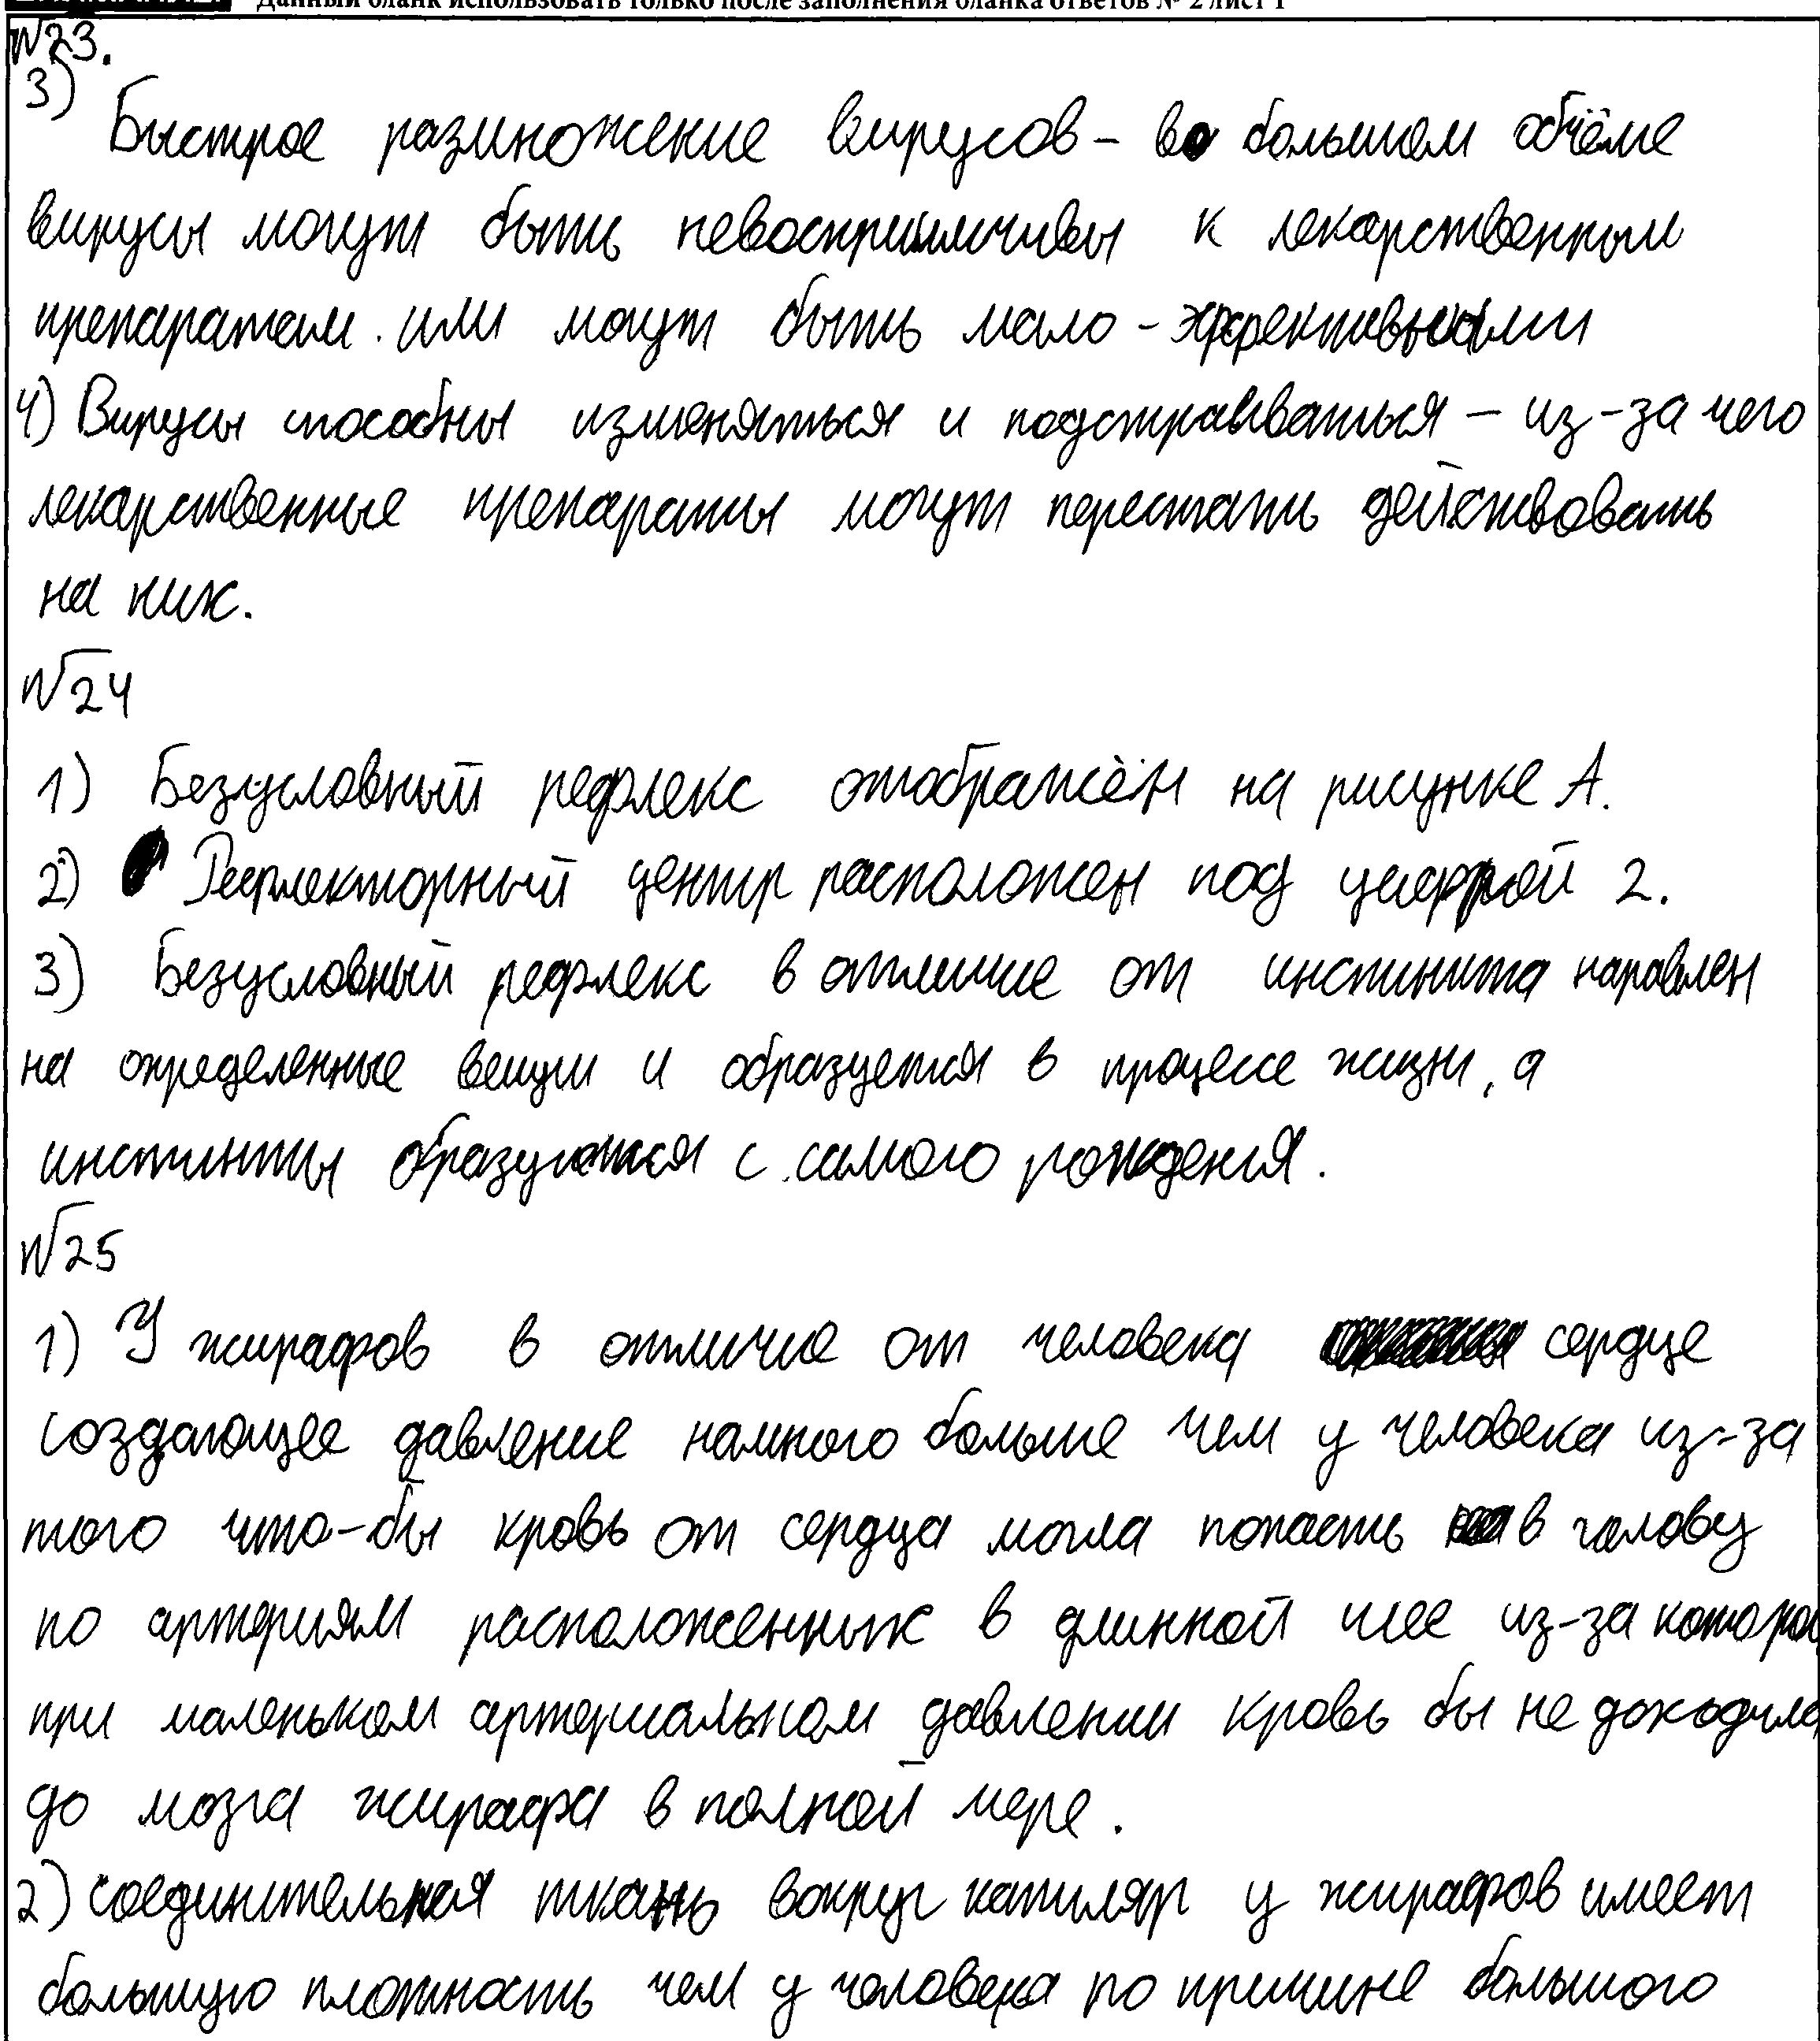 Данный бланк использовать только после заполнения бланка ответов № 2 лист 1
№23.
3)
Быстрое размножение вирусов - в большом объёме
вирусы могут быть невосприимчивы к лекарственным
препаратам. или могут быть мало-эффективными
4) Вирусы способны изменяться и подстраиваться - из-за чего
лекарственные препараты могут перестать действовать
на них.
№24
1) Безусловный рефлекс отображён на рисунке А.
2) Рефлекторный центр расположен под цифрой 2.
3) Безусловный рефлекс в отличие от инстинкта наравлен
на определенные вещи и образуется в процессе жизни, а
инстинкты образуются с самого рождения.
№25
1) У жирафов в отличие от человека сердце
создающее давление намного больше чем у человека из-за
того что-бы кровь от сердца могла попасть в голову
по артериям расположенных в длинной шее из-за которой
при маленьком артериальном давлении кровь бы не доходила
до мозга жирафа в полной мере.
2) соединительная ткань вокруг капиляр у жирафов имеет
большую плотность чем у человека по причине большого